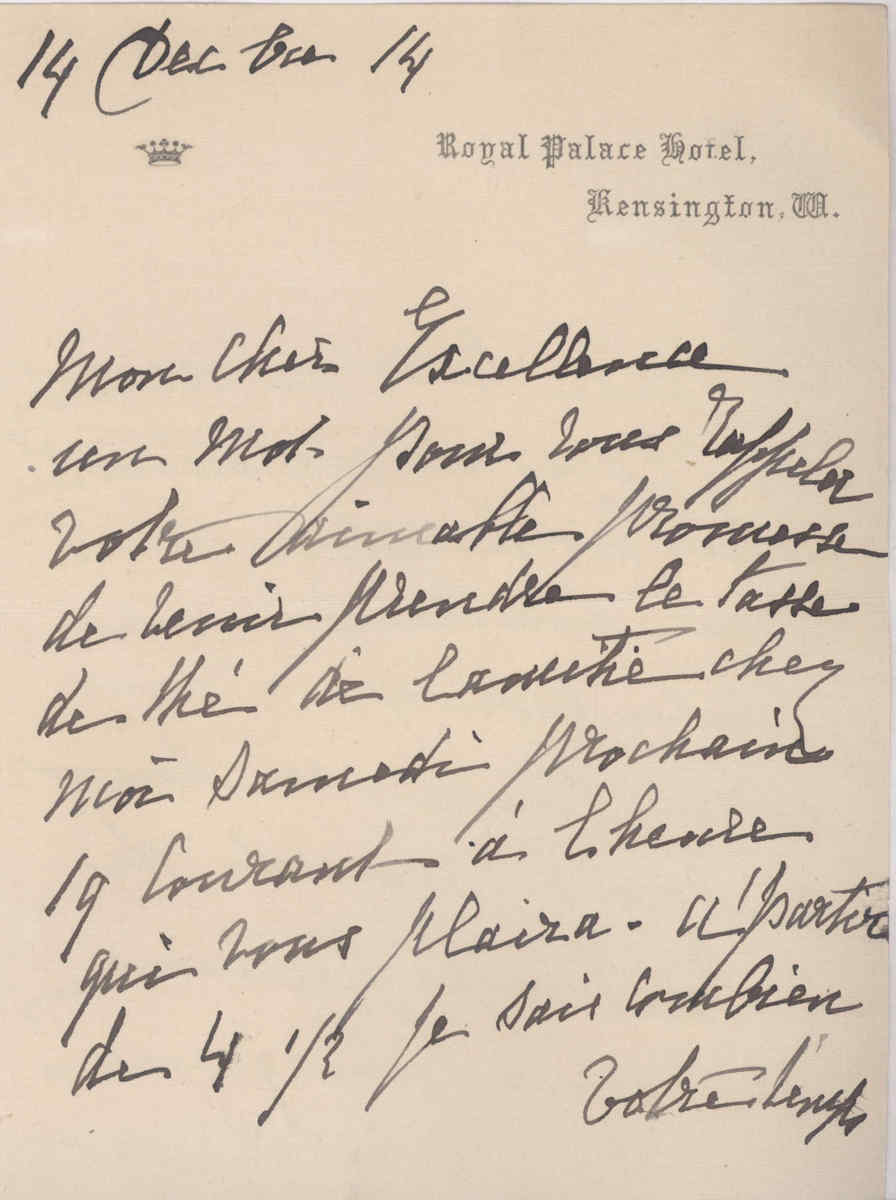 14 Decbre 14
Royal Palace Hotel,
Kensington, W.
Mon cher Excellence
un mot pour vous rappeler
votre aimable promesse
de venir prendre le tasse
de thé de lamitié chez
moi samedi prochain
19 courant á lheure
qui vous plaira. a' partir
de 4 1/2 je sais combien
votre temps